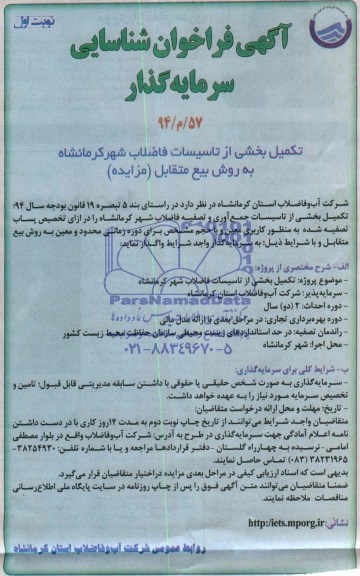 نوبت اول
آگهی فراخوان شناسایی
سرمایه‌گذار
۹۴/م/۵۷
تکمیل بخشی از تاسیسات فاضلاب شهر کرمانشاه
به روش بیع متقابل (مزایده)
شرکت آب‌وفاضلاب استان کرمانشاه در نظر دارد در راستای بند ۵ تبصره ۱۹ قانون بودجه سال ۹۴؛
تکمیل بخشی از تاسیسات جمع‌آوری و تصفیه فاضلاب شهر کرمانشاه را در ازای تخصیص پساب
تصفیه شده به منظور کاربری معین و با حجم مشخص برای دوره زمانی محدود و معین به روش بیع
متقابل و با شرایط ذیل؛ به سرمایه‌گذار واجد شرایط واگذار نماید:
الف- شرح مختصری از پروژه:
- موضوع پروژه: تکمیل بخشی از تاسیسات فاضلاب شهر کرمانشاه
- سرمایه‌پذیر: شرکت آب‌وفاضلاب استان کرمانشاه
- دوره احداث: ۲ (دو) سال
- دوره بهره‌برداری تجاری: در مراحل بعدی با ارائه مدل مالی
- راندمان تصفیه: در حد استانداردهای زیست محیطی سازمان حفاظت محیط زیست کشور
- محل اجرا: شهر کرمانشاه
ParsNamadData
۰۲۱-۸۸۳۴۹۶۷۰-۵
ب- شرایط کلی برای سرمایه‌گذاری:
- سرمایه‌گذاری به صورت شخص حقیقی یا حقوقی با داشتن سابقه مدیریتی قابل قبول؛ تامین و
تخصیص سرمایه مورد نیاز را به عهده خواهد داشت.
- تاریخ؛ مهلت و محل ارائه درخواست متقاضیان:
متقاضیان واجد شرایط می‌توانند از تاریخ چاپ نوبت دوم به مدت ۱۴روز کاری با در دست داشتن
نامه اعلام آمادگی جهت سرمایه‌گذاری در طرح به آدرس: شرکت آب‌وفاضلاب واقع در بلوار مصطفی
امامی- نرسیده به چهارراه گلستان - دفتر قراردادها مراجعه و یا با شماره تلفن: ۳۸۲۵۴۹۳۰-
۳۸۲۳۱۹۶۵ (۰۸۳) تماس حاصل نمایند.
بدیهی است که اسناد ارزیابی کیفی در مراحل بعدی مزایده در اختیار متقاضیان قرار می‌گیرد.
ضمنا متقاضیان می‌توانند متن آگهی فوق را پس از چاپ روزنامه در سایت پایگاه ملی اطلاع‌رسانی
مناقصات ملاحظه نمایند.
نشانی: http://iets.mporg.ir
روابط عمومی شرکت آب‌وفاضلاب استان کرمانشاه